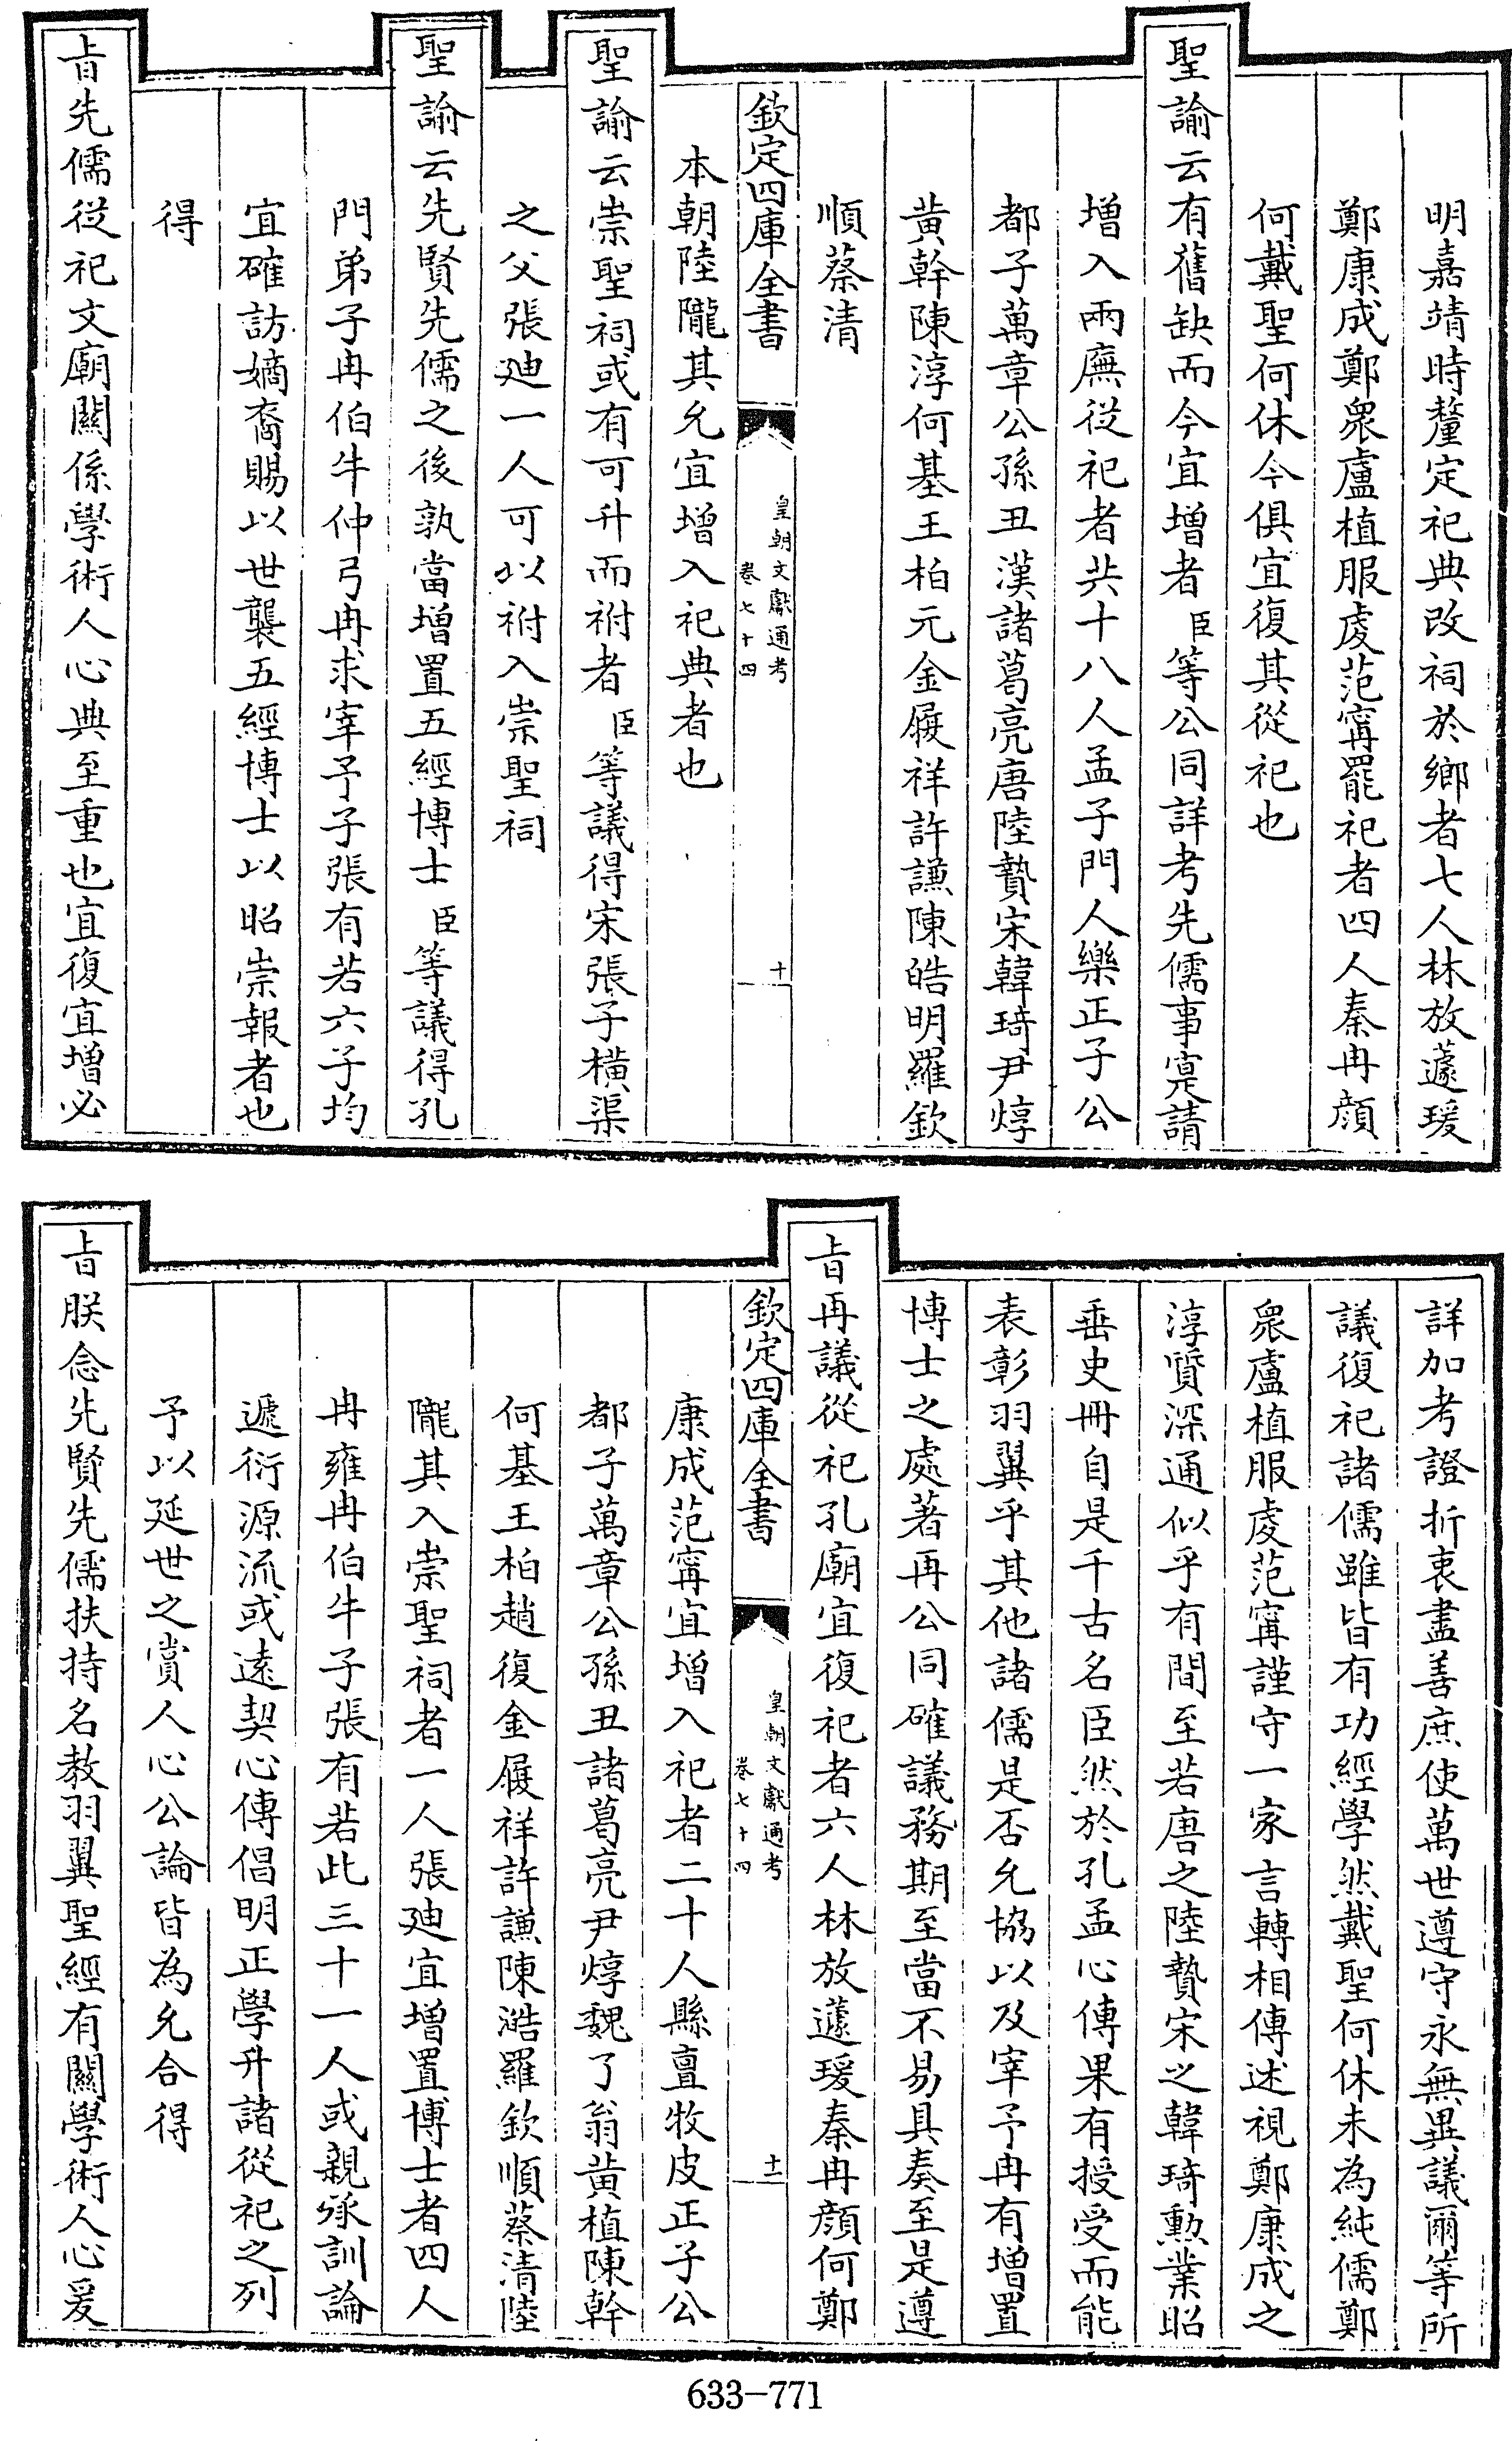 明嘉靖時釐定祀典改祠於鄉者七人林放蘧瑗
鄭康成鄭眾盧植服虔范甯罷祀者四人秦冉顔
何戴聖何休今俱宜復其從祀也
聖諭云有舊缺而今宜增者臣等公同詳考先儒事寔請
增入兩廡從祀者共十八人孟子門人樂正子公
都子萬章公孫丑漢諸葛亮唐陸贄宋韓琦尹焞
黄幹陳淳何基王柏元金履祥許謙陳皓明羅欽
順蔡清
欽定四庫全書
皇朝文獻通考
卷七十四
十
本朝陸隴其允宜增入祀典者也
聖諭云崇聖祠或有可升而祔者臣等議得宋張子横渠
之父張廸一人可以祔入崇聖祠
聖諭云先賢先儒之後孰當增置五經博士臣等議得孔
門弟子冉伯牛仲弓冉求宰予子張有若六子均
宜確訪嫡裔賜以世襲五經博士以昭崇報者也
得
㫖先儒從祀文廟關係學術人心典至重也宜復宜增必
詳加考證折衷盡善庶使萬世遵守永無異議爾等所
議復祀諸儒雖皆有功經學然戴聖何休未為純儒鄭
眾盧植服虔范甯謹守一家言轉相傳述視鄭康成之
淳質深通似乎有間至若唐之陸贄宋之韓琦勲業昭
垂史冊自是千古名臣然於孔孟心傳果有授受而能
表彰羽翼乎其他諸儒是否允協以及宰予冉有增置
博士之處著再公同確議務期至當不易具奏至是遵
㫖再議從祀孔廟宜復祀者六人林放蘧瑗秦冉顔何鄭
欽定四庫全書
皇朝文獻通考
卷七十四
十一
康成范甯宜增入祀者二十人縣亶牧皮正子公
都子萬章公孫丑諸葛亮尹焞魏了翁黄植陳幹
何基王柏趙復金履祥許謙陳澔羅欽順蔡清陸
隴其入崇聖祠者一人張廸宜增置博士者四人
冉雍冉伯牛子張有若此三十一人或親承訓論
遞衍源流或遠契心傳倡明正學升諸從祀之列
予以延世之賞人心公論皆為允合得
㫖朕念先賢先儒扶持名教羽翼聖經有關學術人心爰
633-771